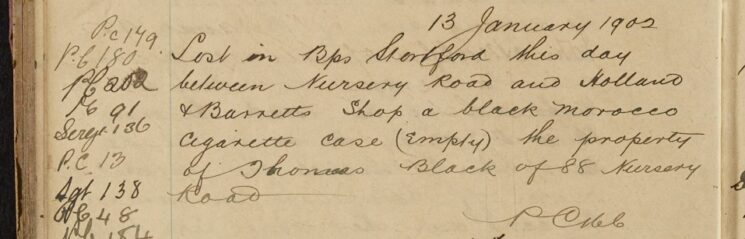 13 January 1902
P.c 149.
P.C 180
Lost in Bps Stortford this day
PC 202
between Nursery Road and Holland
Pc 91
& Barretts Shop a black morocco
Sergt 136
Cigarette case (Empty) the property
P.C. 13
of Thomas Black of 88 Nursery
Sgt 138
Road
PC 48
184